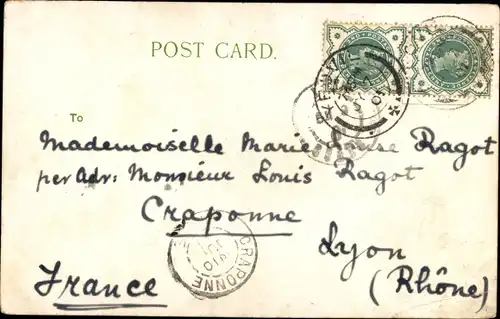 POST CARD.
To
Mademoiselle Marie Louise Ragot
per Adr: Monsieur Louis Ragot
Craponne
Lyon
France
(Rhône)
CRAPONNE